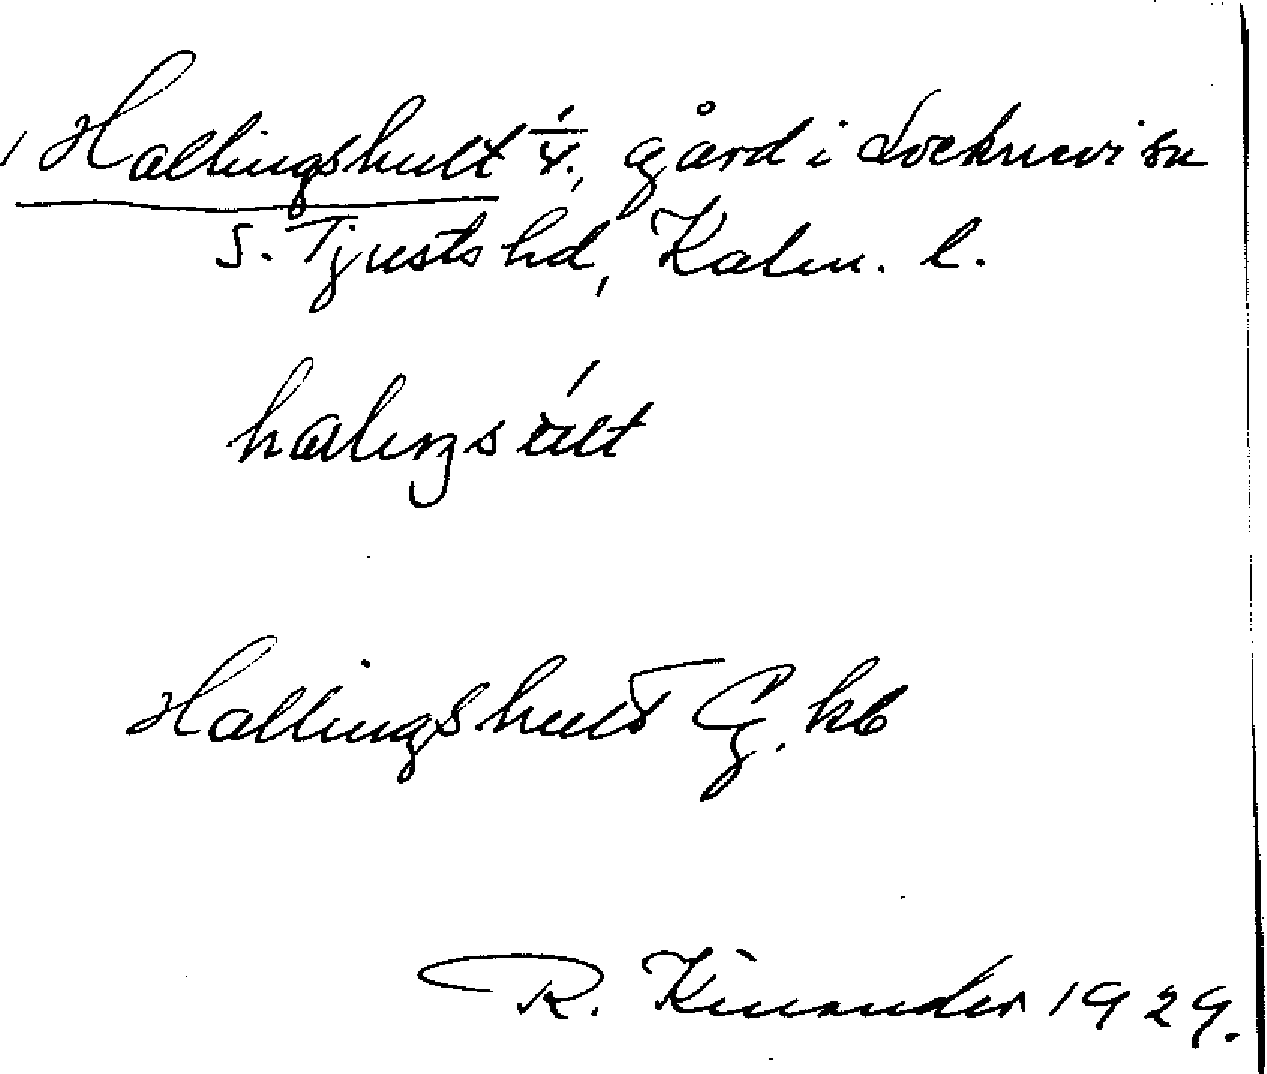 Hallingshult 1/4, gård i Locknevi sn
S. Tjusts hd, Kalm. l.
Hallingshult G. kb
R. Kinander 1929.